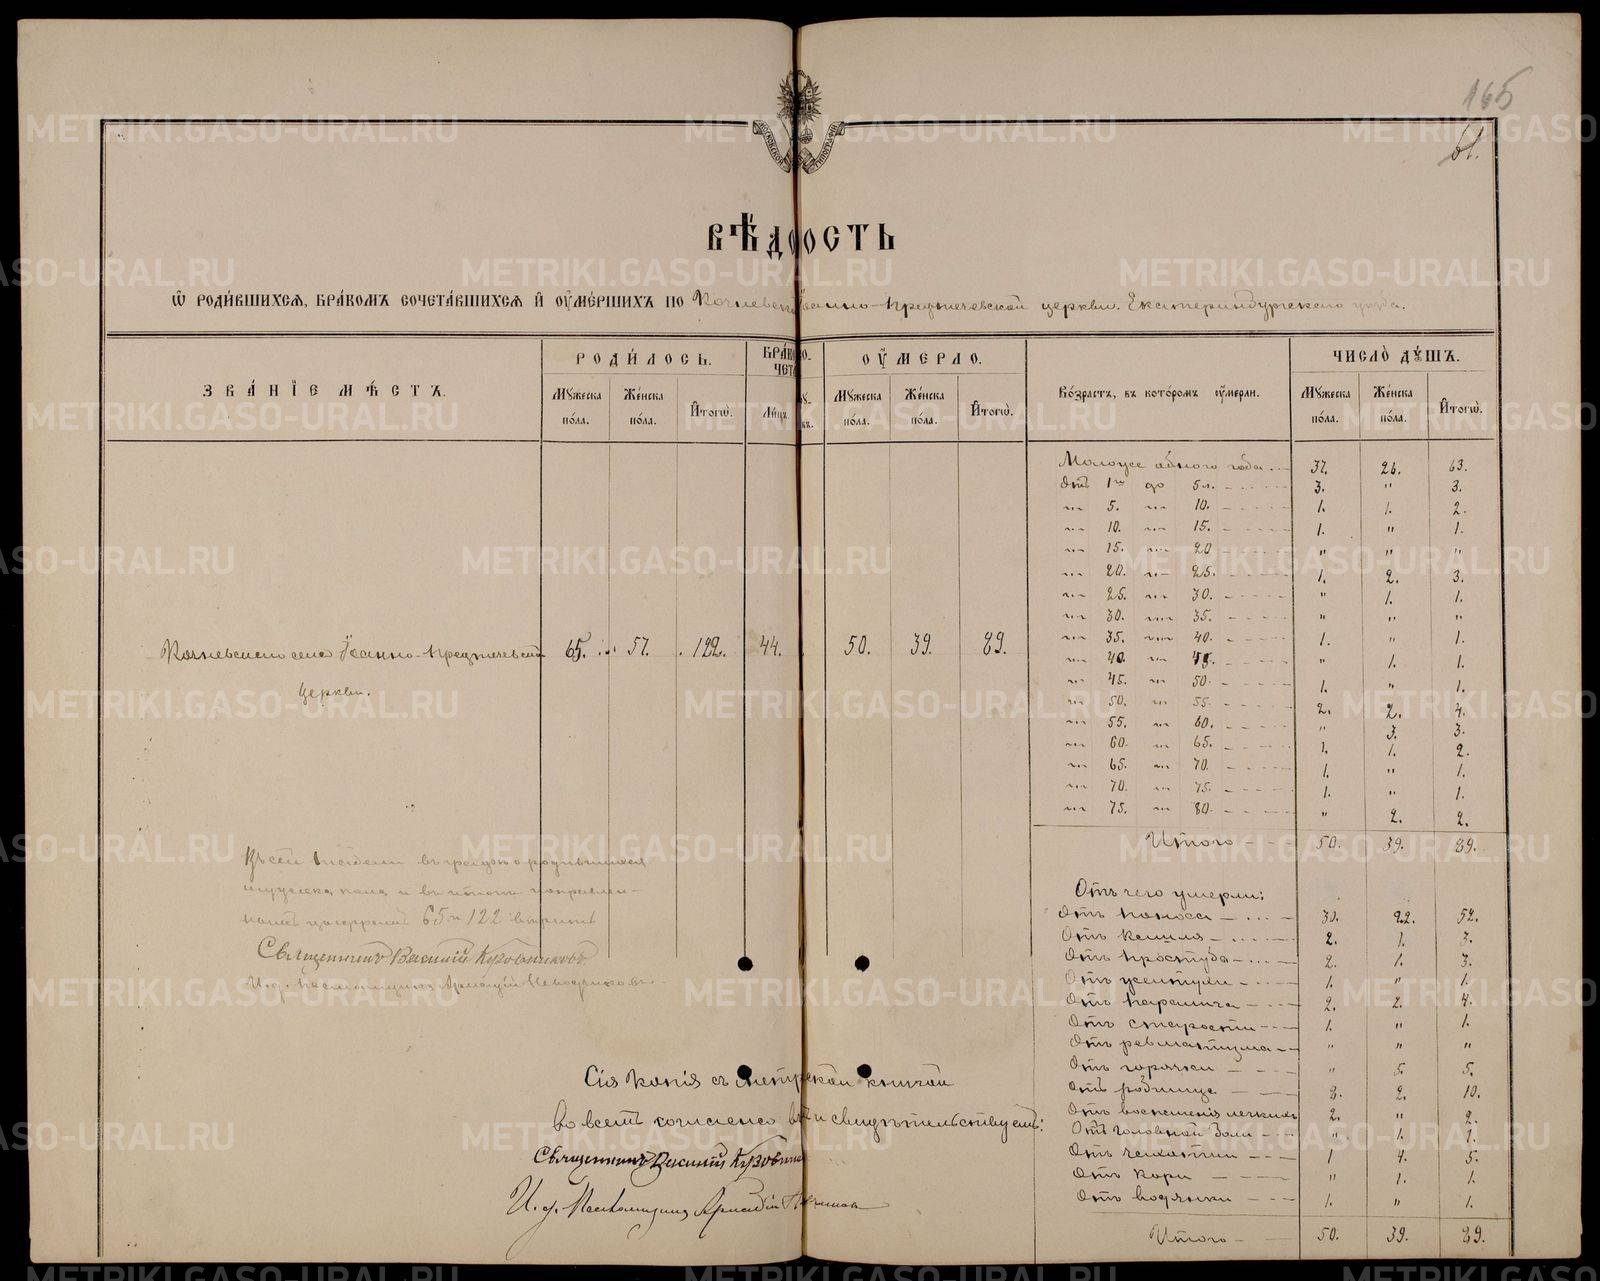 165
61.
МОСКОВСКОЙ ТИПОГРАФИИ
ВѢДОСТЬ
Ѡ РОДИ́ВШИХСѦ, БРА́КОМЪ СОЧЕТА́ВШИХСѦ И҆ ОУ҆МЕ́РШИХЪ ПО Кочневской Іоанно-Предтечевской церкви. Екатеринбургскаго уѣзда.
ЗВА́НІЕ МѢ́СТЪ.
РОДИ́ЛОСЬ.
Мꙋ́жеска по́ла.
Же́нска по́ла.
И҆тогѡ̀.
БРА́КО
ЧЕТА
Ли́цъ.
ОУ҆́МЕРЛО.
Мꙋ́жеска по́ла.
Же́нска по́ла.
И҆тогѡ̀.
Во́зрастъ, въ кото́ромъ оу҆́мерли.
ЧИСЛО̀ ДꙊ́ШЪ.
Мꙋ́жеска по́ла.
Же́нска по́ла.
И҆тогѡ̀.
Кочневскаго села Іоанно-Предтечевской 65. 57. 122. 44. 50. 39. 89.
церкви.
Моложе одного года 37. 26. 63.
Отъ 1го до 5 л. 3. " 3.
" 5. " 10. 1. 1. 2.
" 10. " 15. 1. " 1.
" 15. " 20 " " "
" 20. " 25. 1. 2. 3.
" 25. " 30. " 1. 1.
" 30. " 35. " " "
" 35. " 40. 1. " 1.
" 40. " 45. " 1. 1.
" 45. " 50. 1. " 1.
" 50. " 55. 2. 2. 4.
" 55. " 60. " 3. 3.
" 60. " 65. 1. 1. 2.
" 65. " 70. 1. " 1.
" 70. " 75. 1. " 1.
" 75. " 80. " 2. 2.
Итого 50. 39. 89.
Отъ чего умерли:
Отъ поноса 30. 22. 52.
Отъ кашля 2. 1. 3.
Отъ простуды 2. 1. 3.
Отъ 1. " 1.
Отъ паралича 2. 2. 4.
Отъ старости 1. " 1.
Отъ ревматизма " " "
Отъ горячки " 5. 5.
Отъ родимца 8. 2. 10.
Отъ воспаленія легкихъ 2. " 2.
Отъ головной боли " 1. 1.
Отъ чахотки 1 4. 5.
Отъ кори " 1. 1.
Отъ водянки 1. " 1.
Итого 50. 39. 89.
Въ сей въ графѣ о родившихся
мужеска пола и въ итогѣ поправлен-
65 и 122 вѣрить
Священникъ Василій Кузовниковъ
И. д. псаломщика Аркадій
Сія копія съ метрической книгой
во всемъ согласна въ чемъ и свидѣтельствуемъ:
Священникъ Василій Кузовник
И. д. Псаломщика Аркадій
METRIKI.GASO-URAL.RU